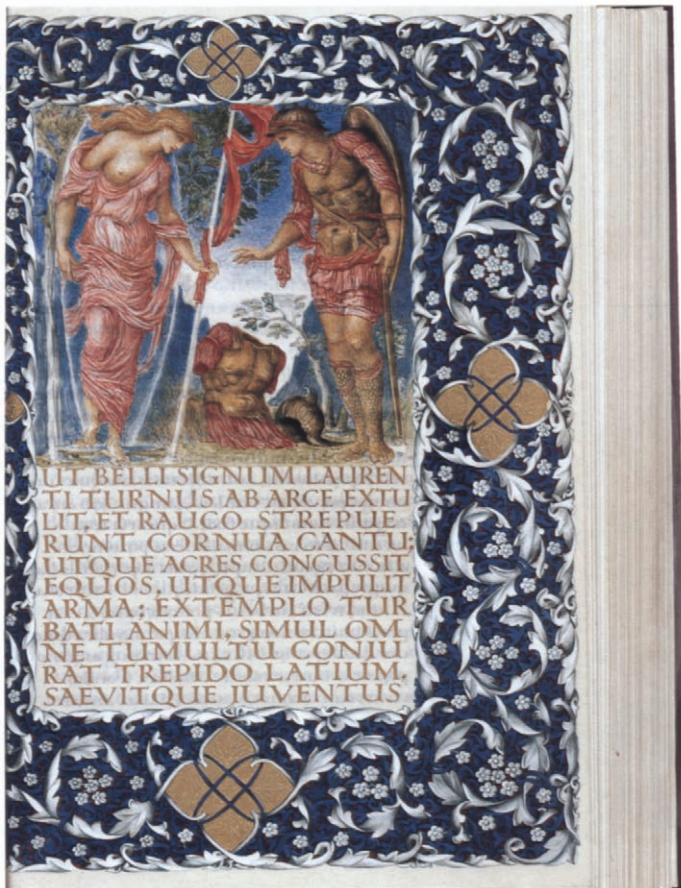 UT BELLI SIGNUM LAUREN
TI TURNUS AB ARCE EXTU
LIT, ET RAUCO STREPUE
RUNT CORNUA CANTU;
UTQUE ACRES CONCUSSIT
EQUOS, UTQUE IMPULIT
ARMA; EXTEMPLO TUR
BATI ANIMI, SIMUL OM
NE TUMULTU CONJU
RAT TREPIDO LATIUM,
SAEVITQUE JUVENTUS